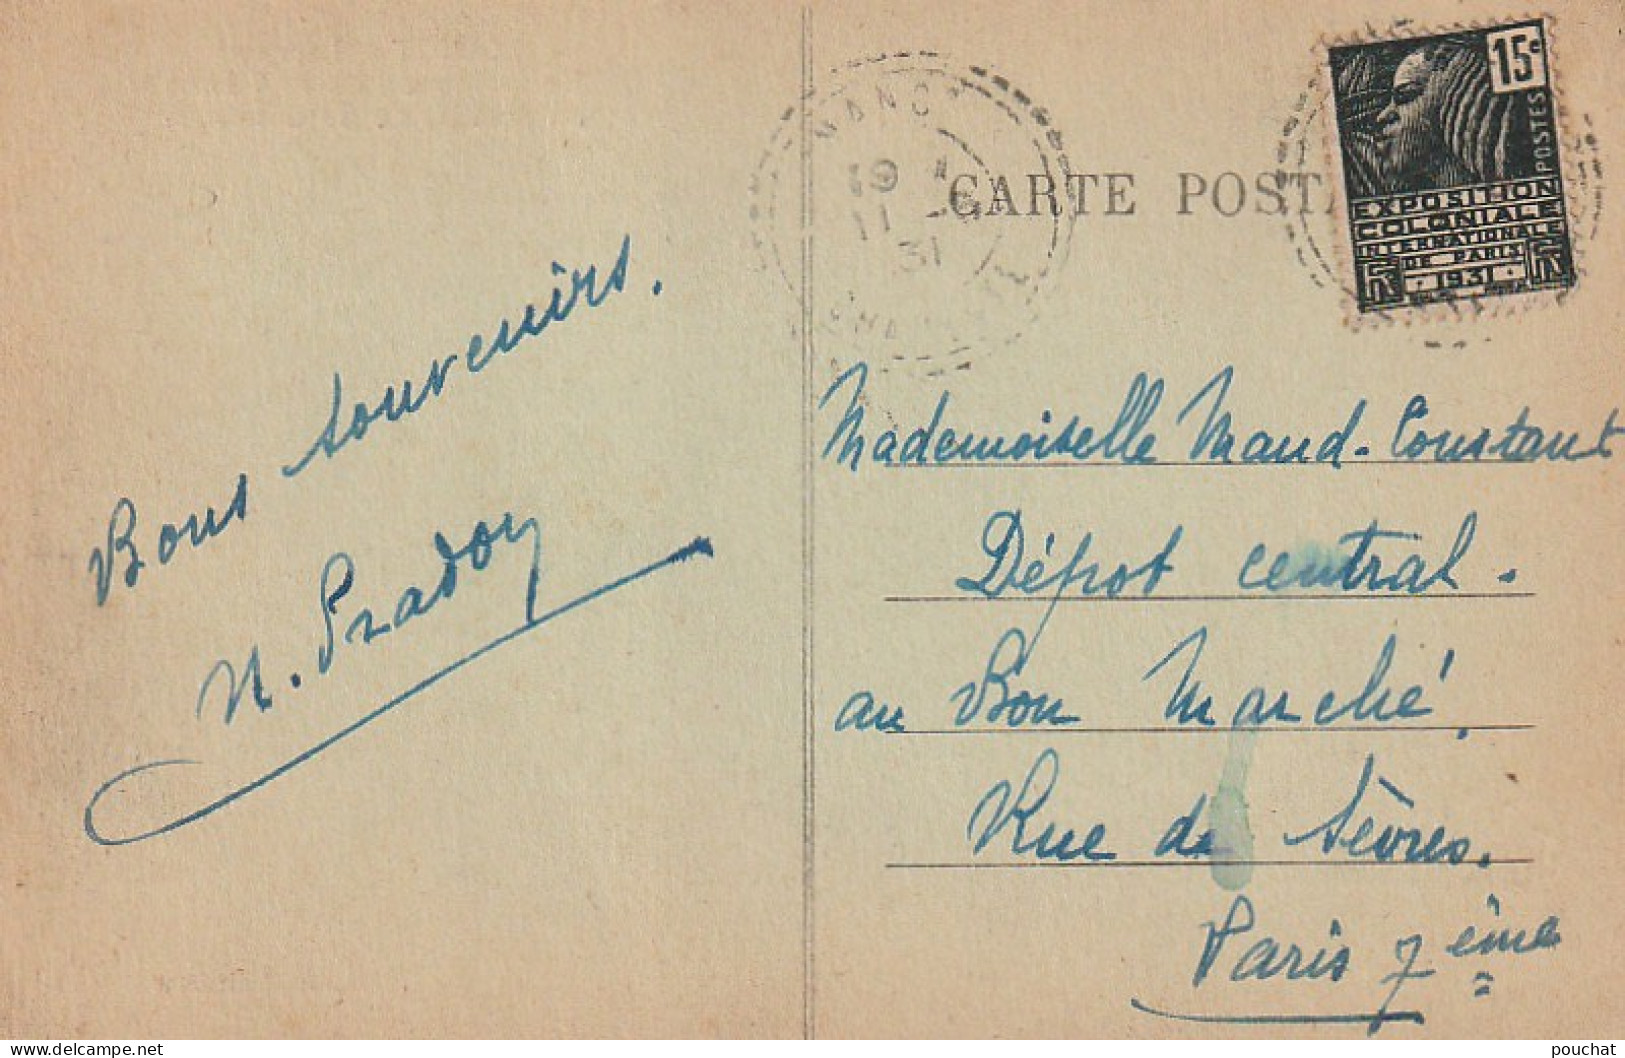 Bons souvenirs.
N. Pradoy
CARTE POSTA
15c
POSTES
EXPOSITION
COLONIALE
INTERNATIONALE
DE PARIS
1931
19
11
31
Mademoiselle Maud-Constant
Dépot central.
au Bon Marché,
Rue de Sèvres.
Paris 7ème
pouchat